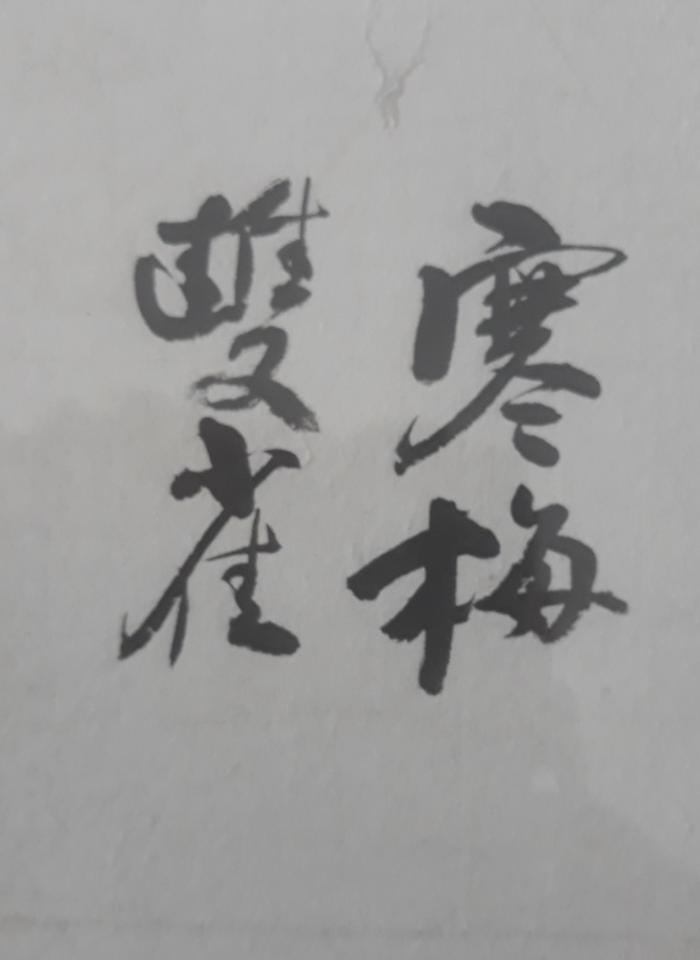 寒梅
雙雀